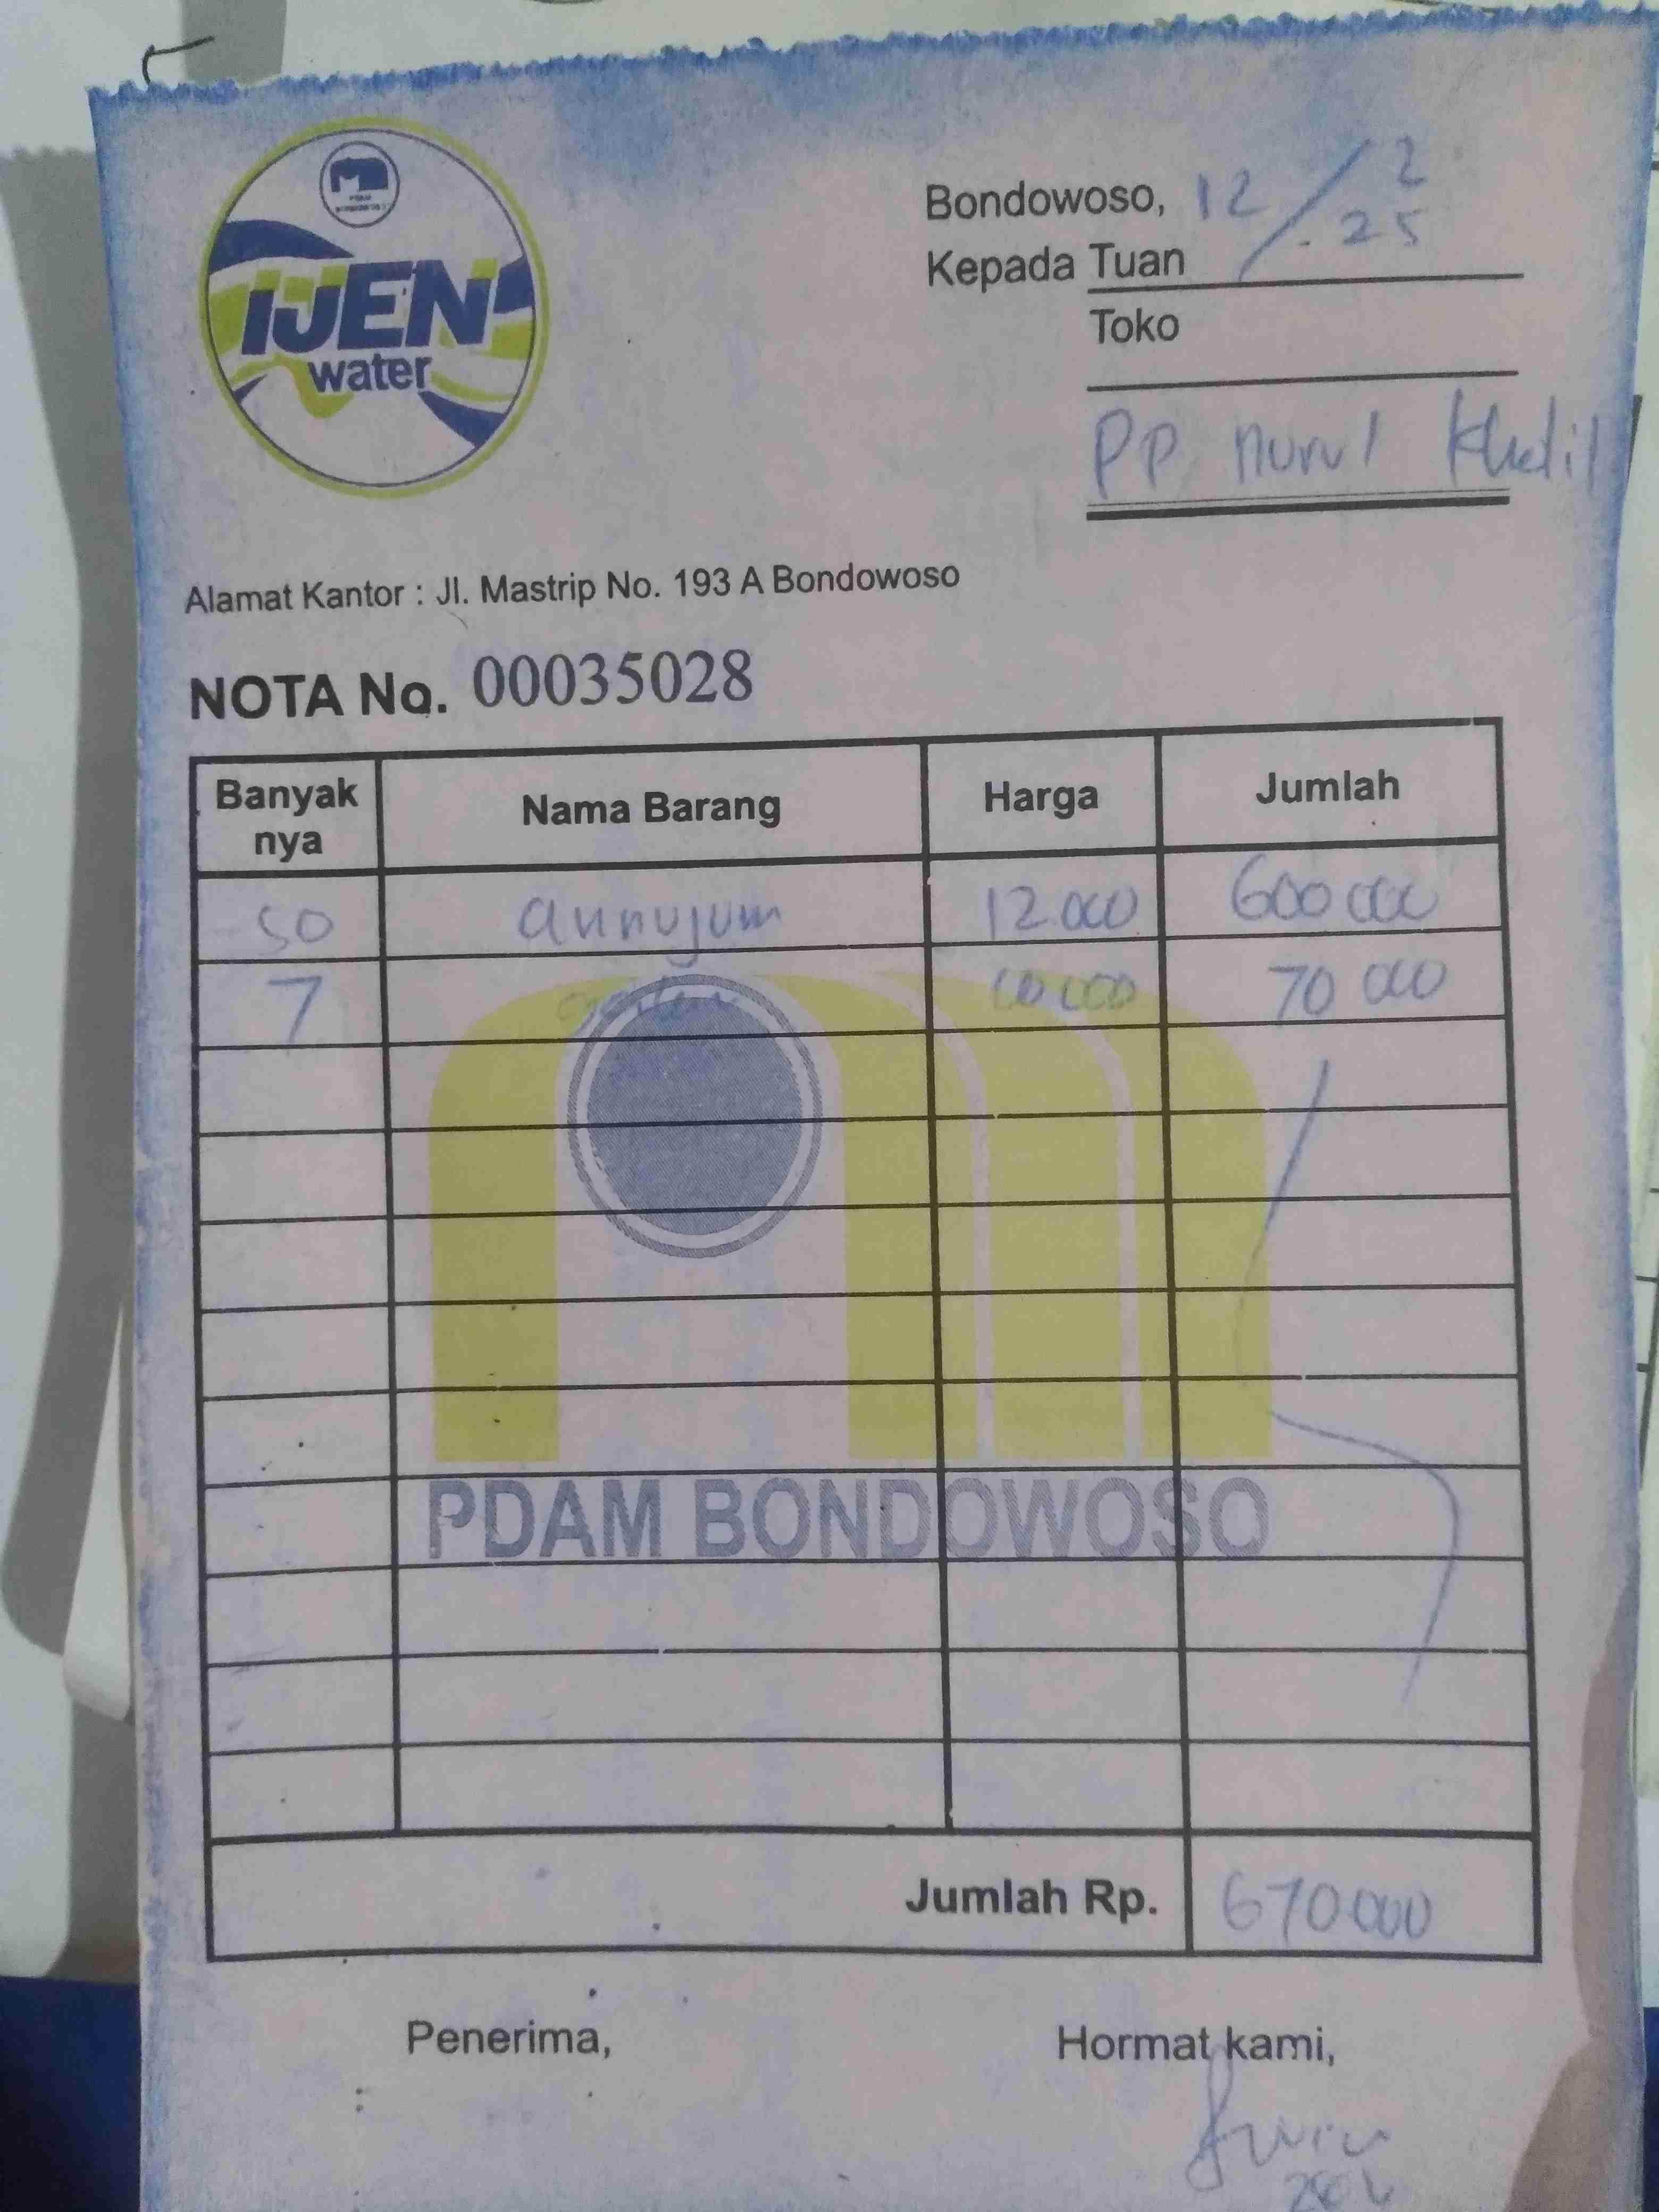 IJEN
water
Bondowoso, 12/2.25
Kepada Tuan
Toko
PP nurul Khalil
Alamat Kantor : Jl. Mastrip No. 193 A Bondowoso
NOTA No. 00035028
Banyak nya Nama Barang Harga Jumlah
50 annujum 12.000 600 000
7 10 000 70 000
PDAM BONDOWOSO
Jumlah Rp. 670 000
Penerima, Hormat kami,